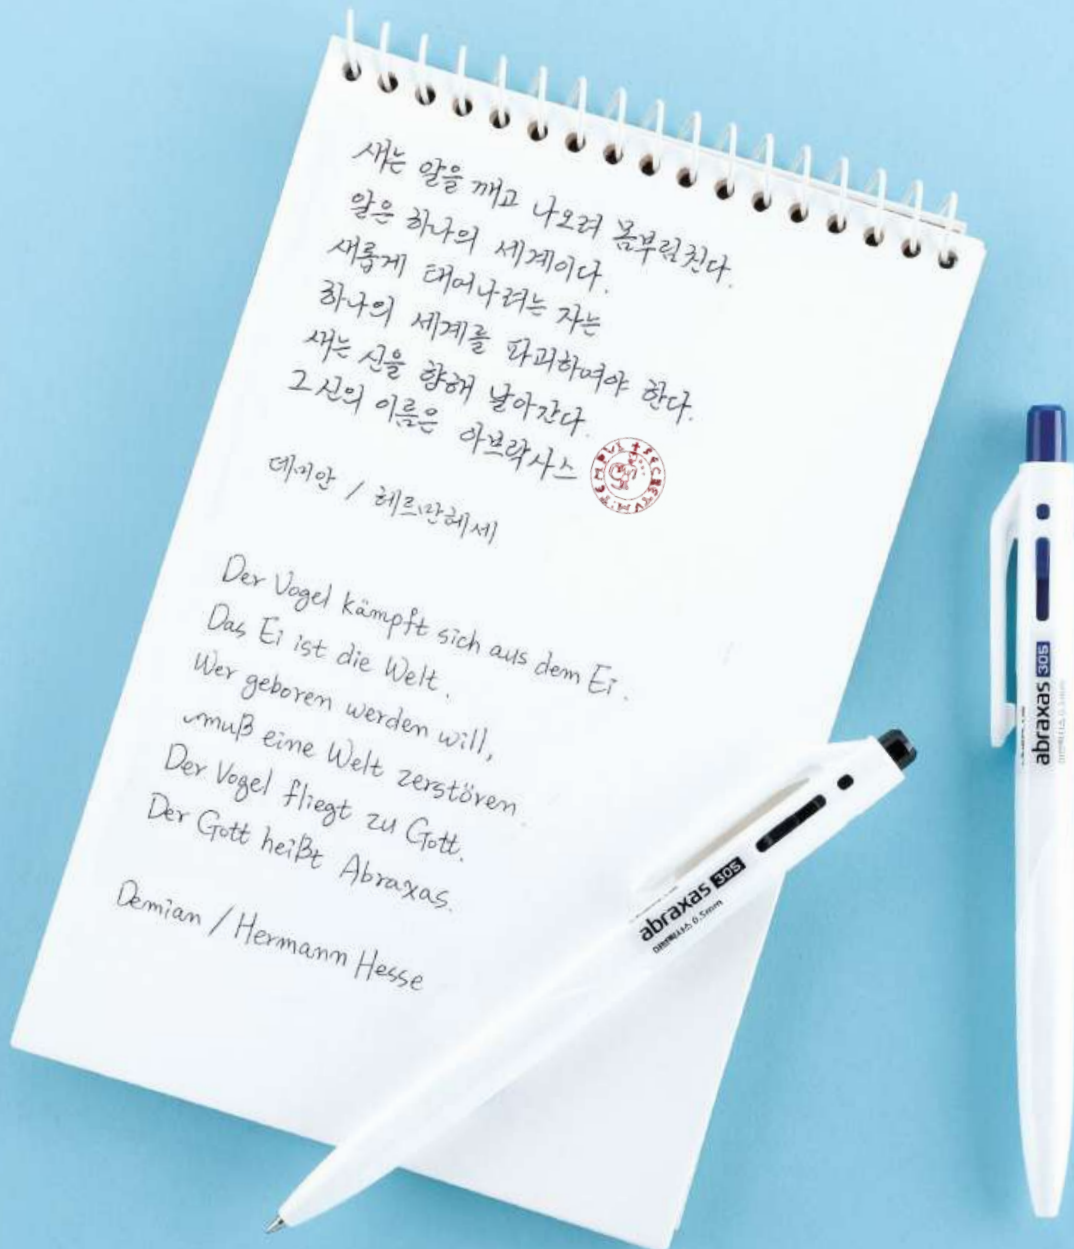 새는 알을 깨고 나오려 몸부림친다.
알은 하나의 세계이다.
새롭게 태어나려는 자는
하나의 세계를 파괴하여야 한다.
새는 신을 향해 날아간다.
그 신의 이름은 아브락사스
데미안 / 헤르만헤세
Der Vogel kämpft sich aus dem Ei.
Das Ei ist die Welt.
Wer geboren werden will,
muß eine Welt zerstören.
Der Vogel fliegt zu Gott.
Der Gott heißt Abraxas.
Demian / Hermann Hesse
abraxas 305
0.5mm
abraxas 305